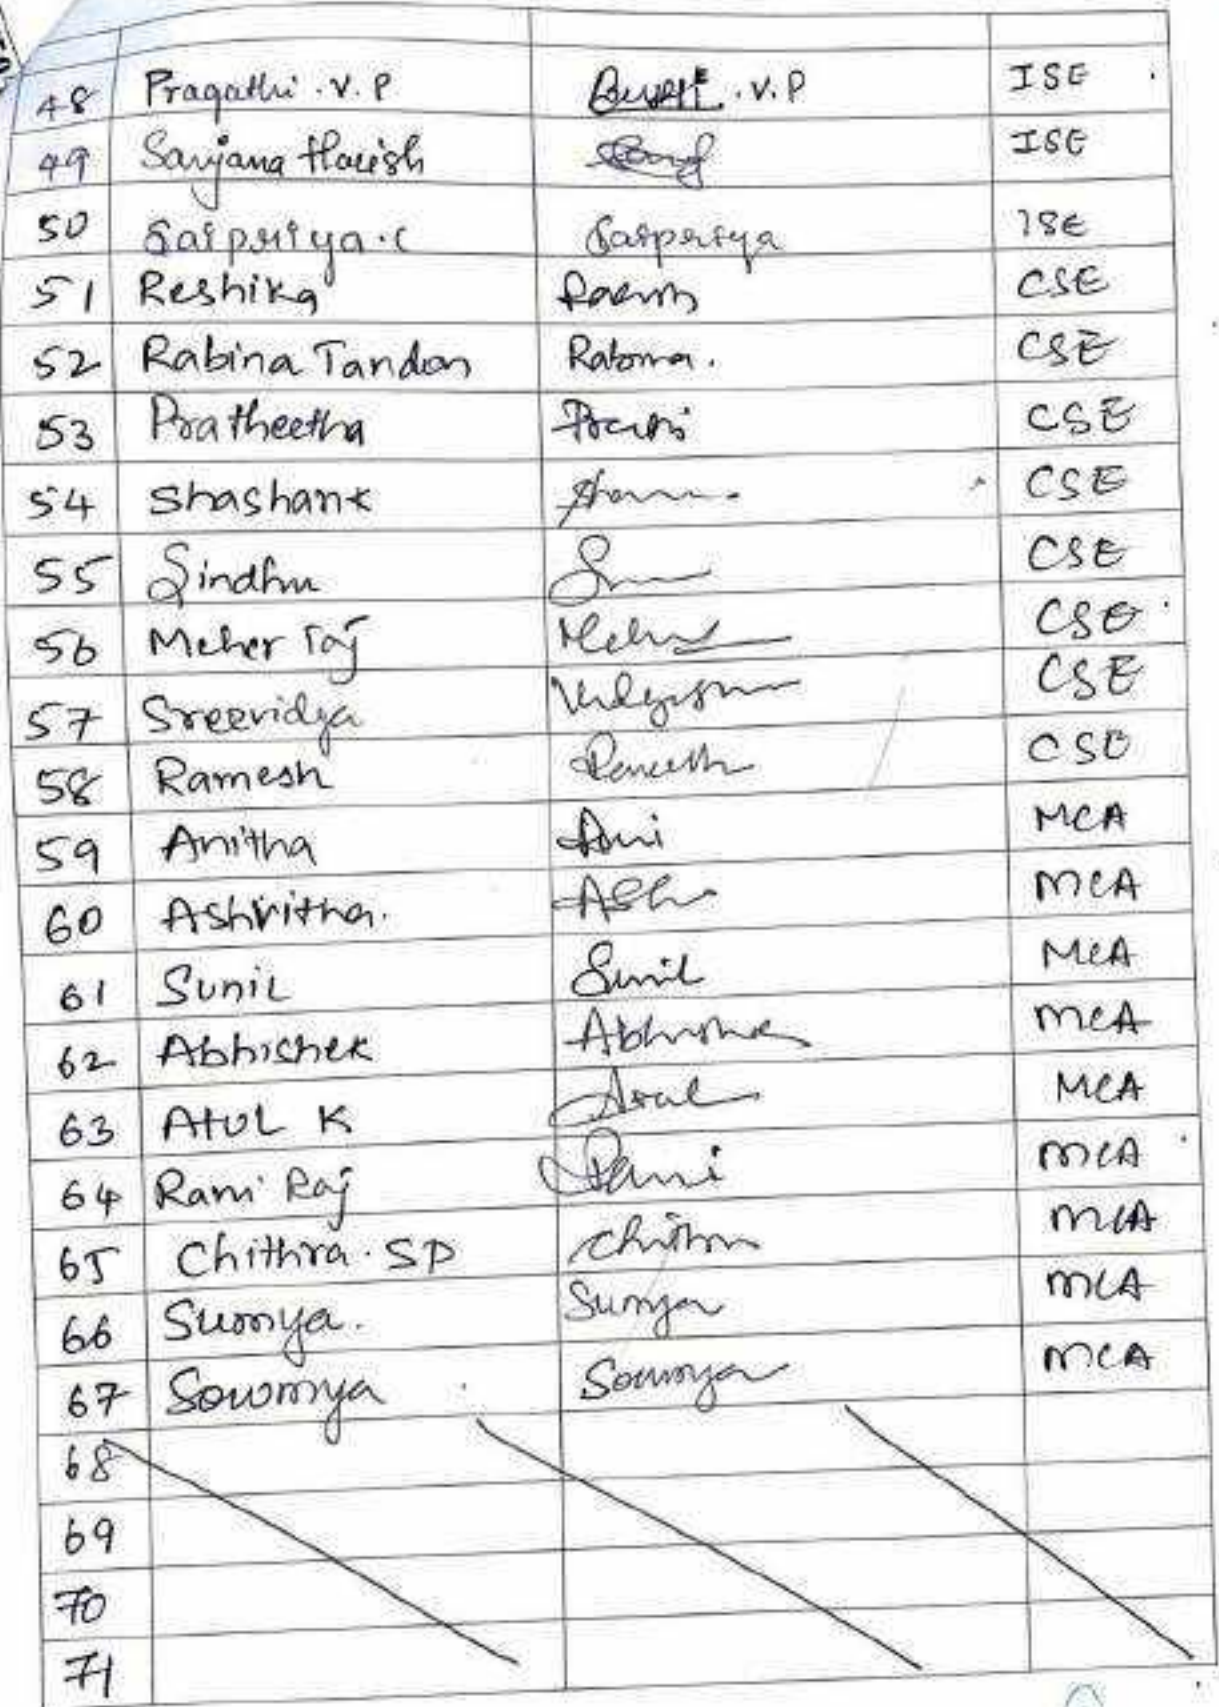 48 Pragathi . V . P . V.P ISE
49 Sanjana Harish ISE
50 Saipriya . C Saipriya ISE
51 Reshika CSE
52 Rabina Tandon CSE
53 Pratheetha CSE
54 Shashank CSE
55 Sindhu CSE
56 Meher raj CSE
57 Sreevidya CSE
58 Ramesh CSE
59 Anitha Ani MCA
60 Ashritha. MCA
61 Sunil Sunil MCA
62 Abhishek MCA
63 Atul K MCA
64 Rami Raj Rami MCA
65 Chithra . SP MCA
66 Sumya. Sumya MCA
67 Sowmya Sowmya MCA
68
69
70
71